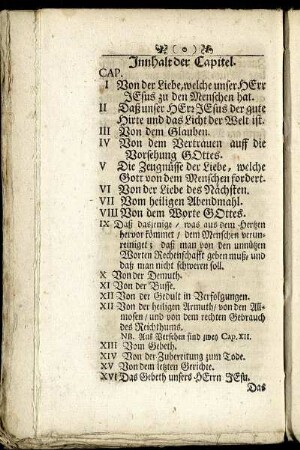 ( o )
Innhalt der Capitel.
CAP.
I Von der Liebe, welche unser HErr
JEsus zu den Menschen hat.
II Daß unser HErr JEsus der gute
Hirte und das Licht der Welt ist.
III Von dem Glauben.
IV Von dem Vertrauen auff die
Vorsehung GOttes.
V Die Zeugnüsse der Liebe, welche
Gott von dem Menschen fordert.
VI Von der Liebe des Nächsten.
VII Vom heiligen Abendmahl.
VIII Von dem Worte GOttes.
IX Daß dasjenige / was aus dem Hertzen
hervor kömmet / dem Menschen verun-
reiniget; daß man von den unnützen
Worten Rechenschafft geben muß; und
daß man nicht schweren soll.
X Von der Demuth.
XI Von der Busse.
XII Von der Gedult in Verfolgungen.
XII Von der heiligen Armuth / von den All-
mosen / und von dem rechten Gebrauch
des Reichthums.
NB. Aus Versehen sind zwey Cap. XII.
XIII Vom Gebeth.
XIV Von der Zubereitung zum Tode.
XV Von dem letzten Gerichte.
XVI Das Gebeth unsers HErrn JEsu.
Das